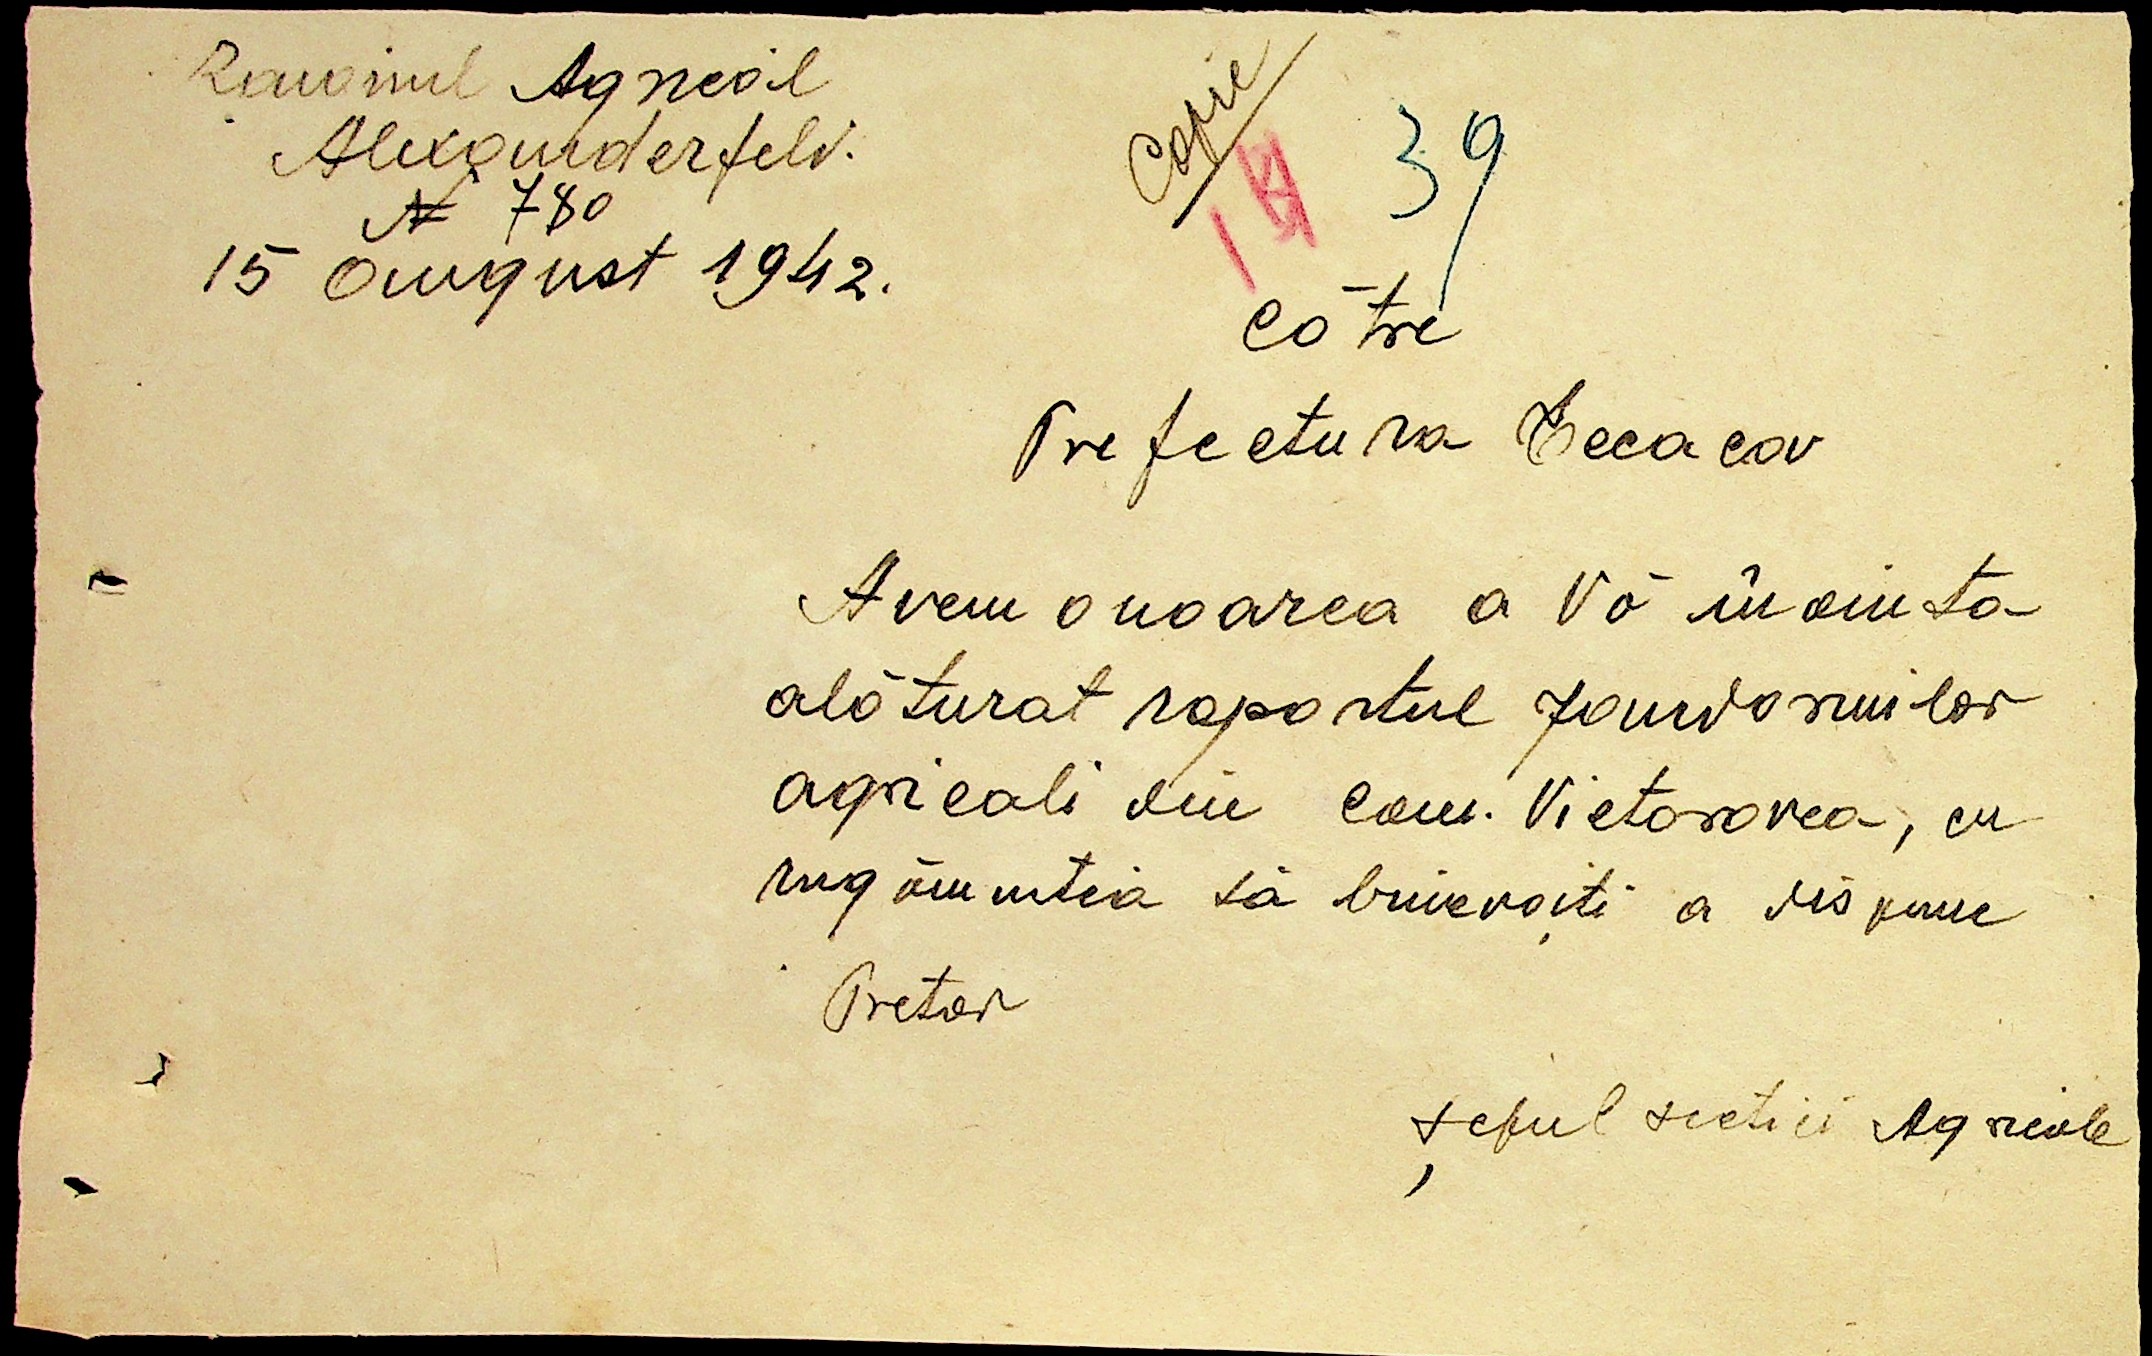 Raionul Agricol
Alexanderfeld.
N 780
15 August 1942.
Copie
39
Cōtre
Prefectura
Avem onoarea a Vō înainta
alōturat raportul jandarmilor
agricoli din Com. Victorovca, cu
rugōmintea sā binevoiţi a dispune
Pretor
Şeful sectiei Agricole